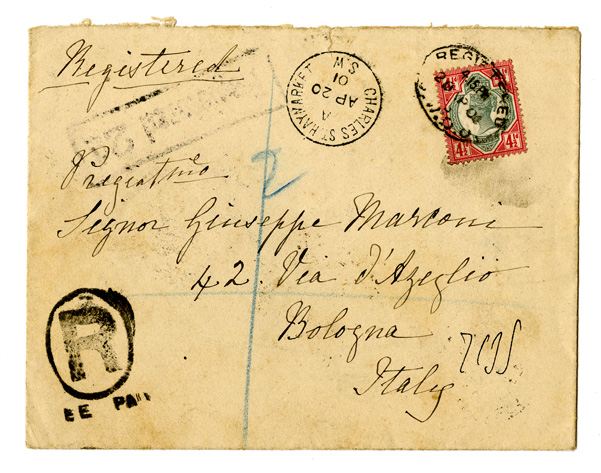 Registered
CHARLES ST HAYMARKET S.W
A
AP 20
01
REGISTERED
4½ 4½
2
Pregiatmo
Signor Giuseppe Marconi
42. Via d'Azeglio
Bologna
Italy
R
EE PAI